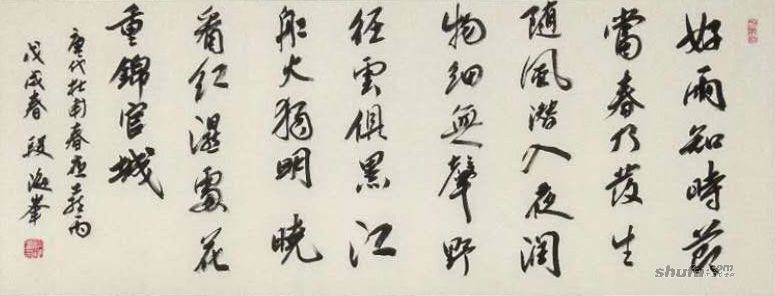 好雨知時節
當春乃發生
随風潛入夜潤
物細無聲野
徑雲俱黑江
船火獨明曉
看紅濕處花
重錦官城
唐代杜甫春夜喜雨
戊戌春 段海峯
shufa.com